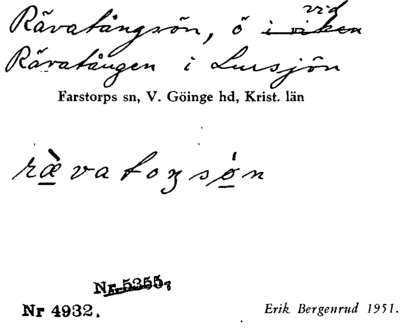 Rävatångsön, ö i viken vid
Rävatången i Lursjön
Farstorps sn, V. Göinge hd, Krist. län
rævatoŋsøn
Nr 5355.
Nr 4932.
Erik Bergenrud 1951.